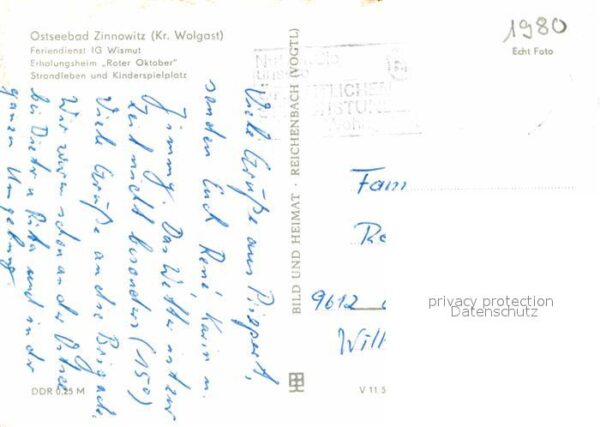 Ostseebad Zinnowitz (Kr. Wolgast)
Feriendienst IG Wismut
Erholungsheim „Roter Oktober"
Strandleben und Kinderspielplatz
1980
Echt Foto
Viele Grüße aus
senden Euch René, Karin u.
Jimmy. Das Wetter ist zur
Zeit nicht besonders (15°)
Viele Grüße an die Brigade.
Wir waren schon an der Ostsee
bei Dieter u Rita und in der
ganzen Umgebung.
BILD UND HEIMAT · REICHENBACH (VOGTL)
Fam
9612
privacy protection
Datenschutz
DDR 0,25 M
V 11 5